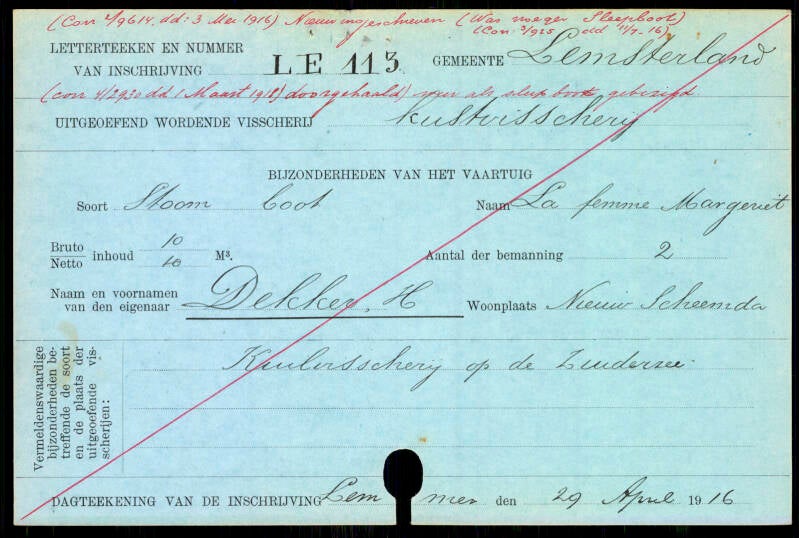 (Corr 2/9614. dd: 3 Mei 1916) Nieuw ingeschreven (Was vroeger Sleepboot)
(Corr: 3/925 dd 11/7-16)
LETTERTEEKEN EN NUMMER
VAN INSCHRIJVING LE 113 GEMEENTE Lemsterland
(corr 4/2930 dd 1 Maart 1918) doorgehaald) weer als sleepboot gebezigd
UITGEOEFEND WORDENDE VISSCHERIJ Kustvisscherij
BIJZONDERHEDEN VAN HET VAARTUIG
Soort Stoom boot Naam La femme Margeriet
Bruto 10
Netto inhoud 10 M³. Aantal der bemanning 2
Naam en voornamen
van den eigenaar Dekker, H Woonplaats Nieuw Scheemda
Vermeldenswaardige
bijzonderheden be-
treffende de soort
en de plaats der
uitgeoefende vis-
scherijen:
Kuilvisscherij op de Zuiderzee
DAGTEEKENING VAN DE INSCHRIJVING Lemmer den 29 April 1916